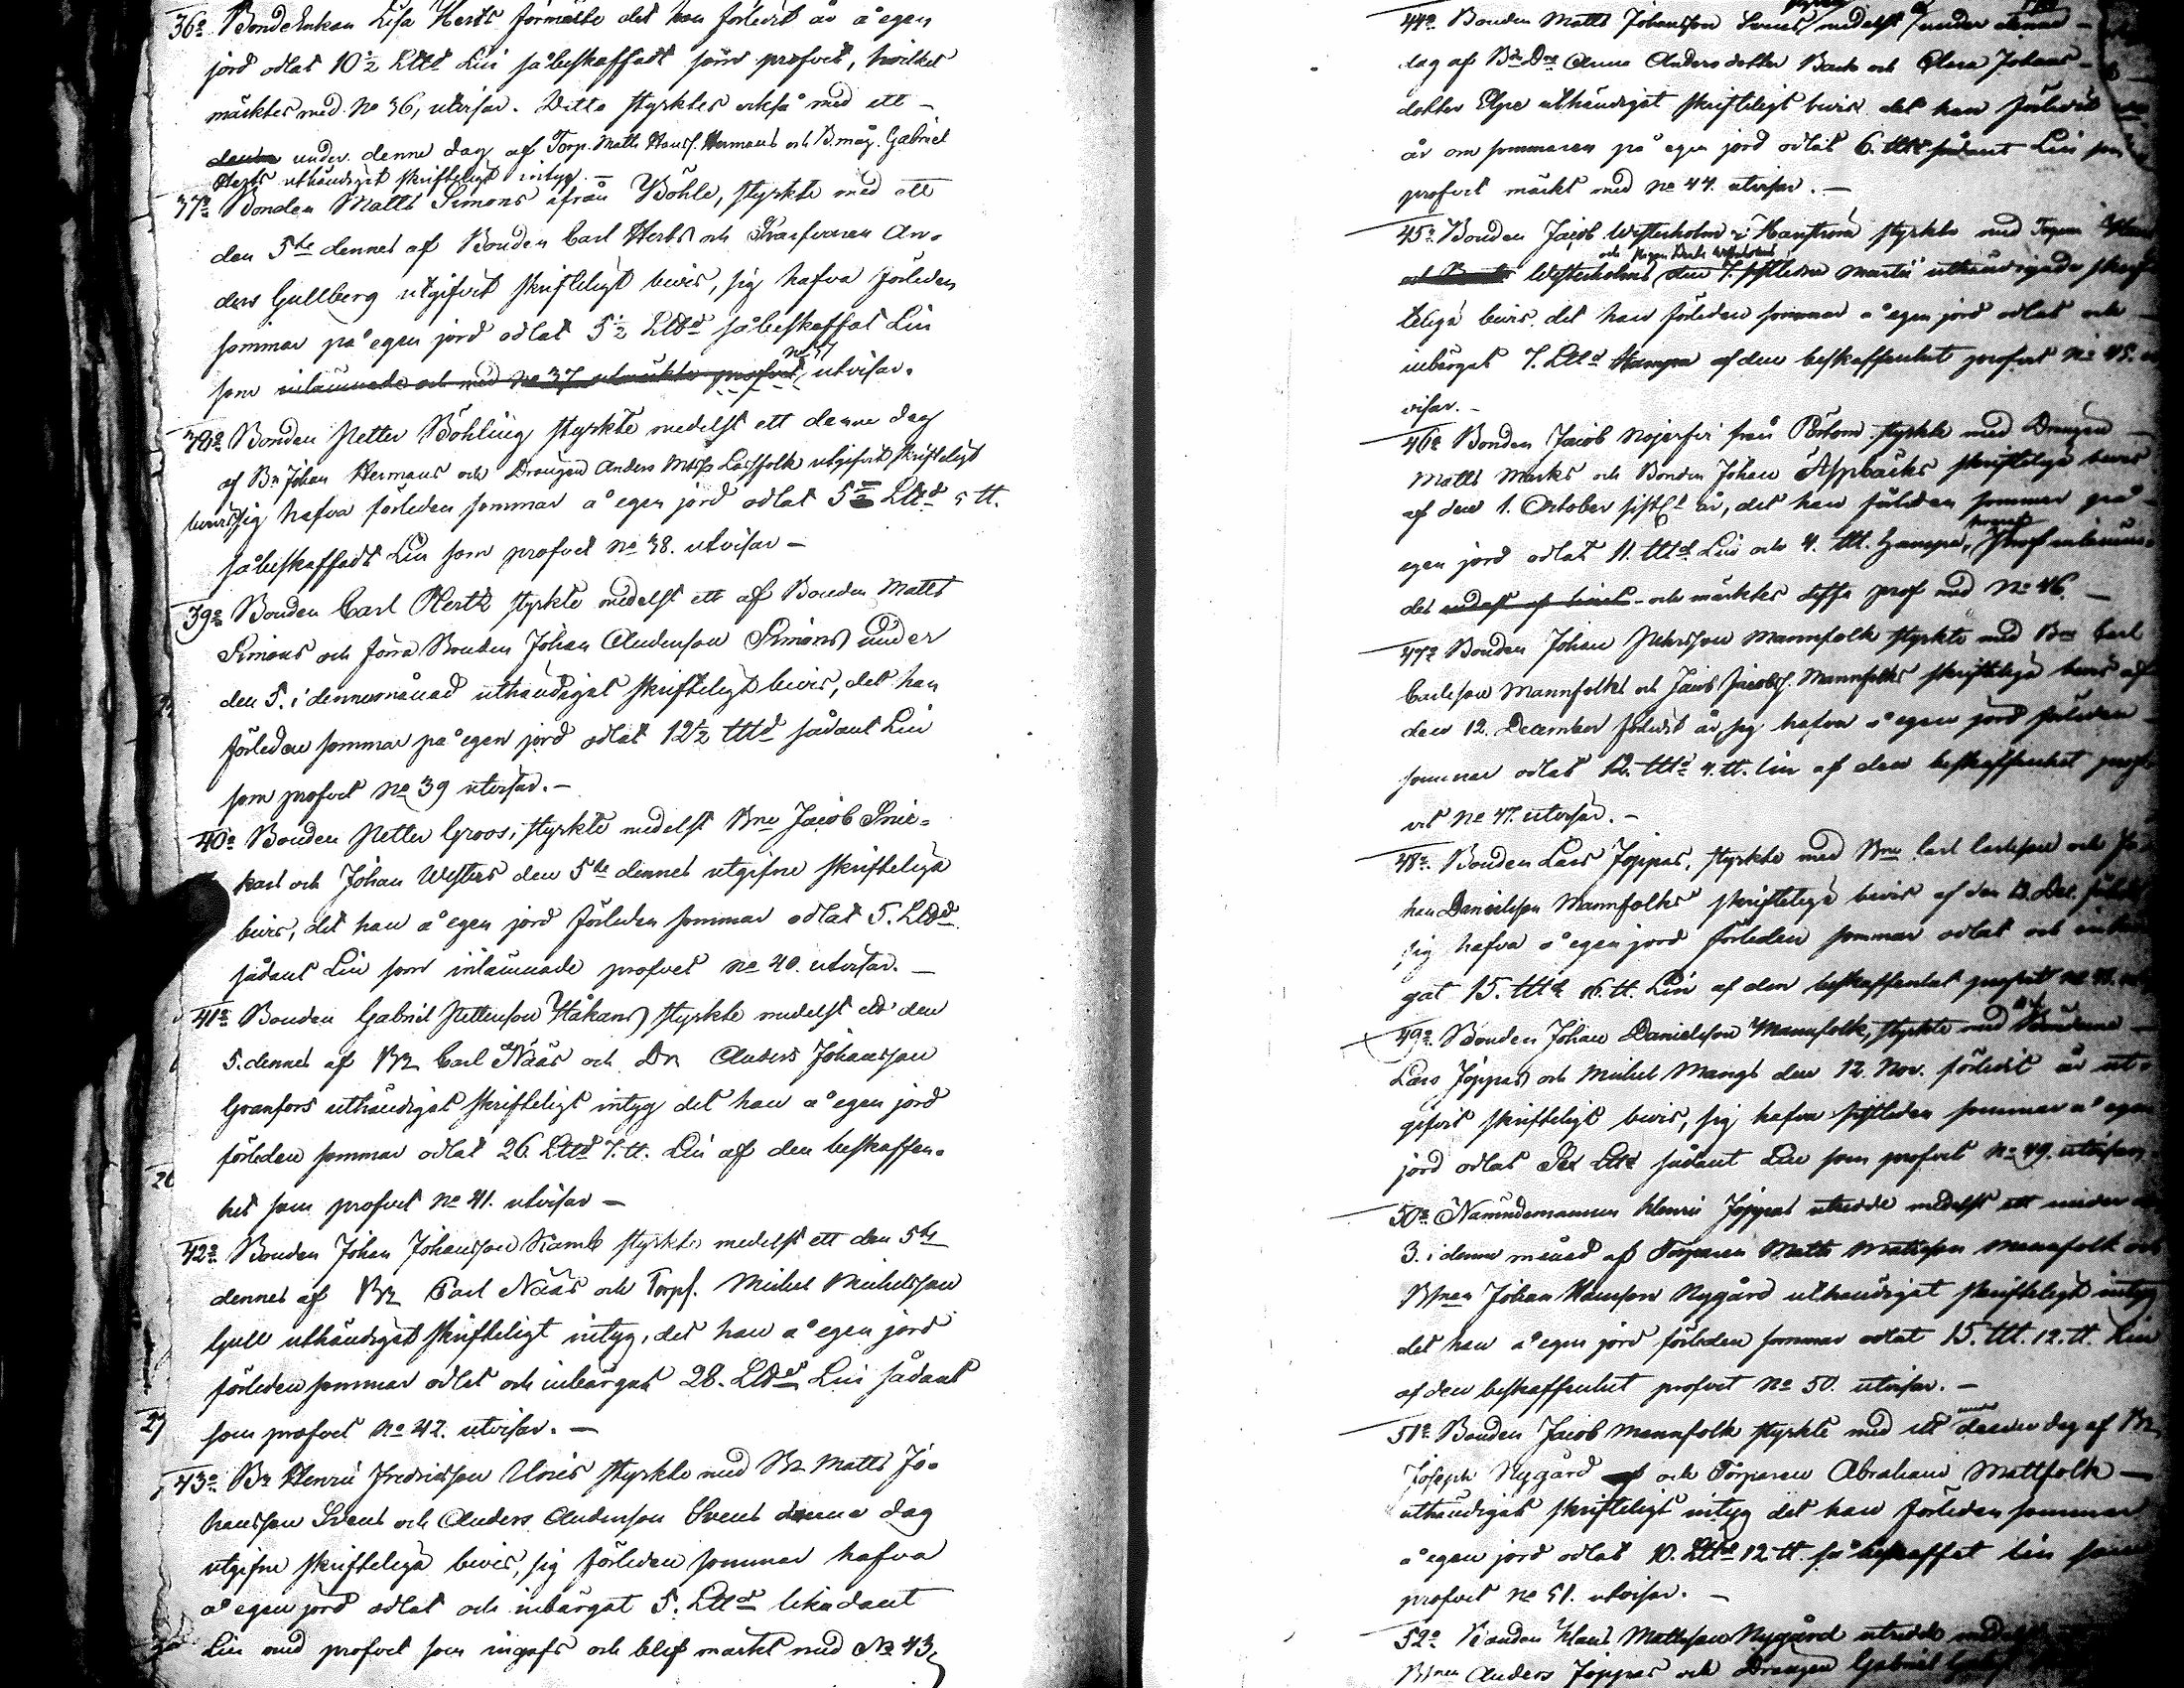 36o Bondeenkan Lisa Herts förmälte det hon förledit år å egen
jord odlat 10 1/2 Lttd Lin så beskaffadt som profvet, hvilket
märktes med No 36, utvisar. Detta styrktes också med ett
under denne dag af Torp. Matts Hanss. Hermans och B.måg. Gabriel
Herts uthändigat skrifteligt intyg.
37o Bonden Matts Simons ifrån Böhle, styrkte med ett
den 5te dennes af Bonden Carl Herts och Svarfvaren An-
ders Gullberg utgifvet skrifteligt bevis, sig hafva förleden
sommar på egen jord odlat 5 1/2 Lttd så beskaffat Lin
som inlämnade och med No 37 utmärkte profvet No 37 utvisar.
38o Bonden Petter Böhling styrkte medelst ett denne dag
af Bn Johan Hermans och Drängen Anders Mattss Lassfolk utgifvit skrifteligt
bevis sig hafva förleden sommar å egen jord odlat 5 Lttd 5 tt.
så beskaffadt Lin som profvet No 38. utvisar —
39o Bonden Carl Herts styrkte medelst ett af Bonden Matts
Simons och förra Bonden Johan Andersson Simons under
den 5. i denne månad uthändigat skrifteligt bevis, det han
förleden sommar på egen jord odlat 12 1/2 tttd sådant Lin
som profvet No 39 utvisar. —
40o Bonden Petter Groos, styrkte medelst Bne Jacob Snic-
kars och Johan Westers den 5te dennes utgifne skrifteliga
bevis, det han å egen jord förleden sommar odlat 5. Lttd
sådant Lin som inlämnade profvet No 40. utvisar. —
41o Bonden Gabriel Pettersson Håkans styrkte medelst ett den
5. dennes af Bn Carl Nääs och Dn Anders Johansson
Granfors uthändigat skrifteligt intyg det han å egen jord
förleden sommar odlat 26 Lttd 7. tt. Lin af den beskaffen-
het som profvet No 41. utvisar —
42o Bonden Johan Johansson Ramb styrkte medelst ett den 5te
dennes af Bn Carl Nääs och Torps. Michel Michelsson
Gull uthändigat skrifteligt intyg, det han å egen jord
förleden sommar odlat och inbärgat 28. Lttd Lin sådant
som profvet No 42. utvisar. —
43o Bn Henric Fredricsson Unis styrkte med Bn Matts Jo-
hansson Svens och Anders Andersson Svens denna dag
utgifne skrifteliga bevis, sig förleden sommar hafva
å egen jord odlat och inbärgat 5. Lttd likadant
Lin med profvet som ingafs och blef märkt med No 43.
44o Bonden Matts Johansson Svens medelst under denna
dag af Bde Dne Anna Andersdotter Back och Clara Johans-
dotter Elpe uthändigat skrifteligt bevis det han förledit
år om sommaren på egen jord odlat 6. ttt sådant Lin som
profvet märkt med No 44. utvisar. —
45o Bonden Jacob Westerholm i Harrström styrkte med
Westerholms den 7. sistledne Martii uthändigade skrif-
teliga bevis det han förleden sommar å egen jord odlat och
inbärgat 7. Lttd Hampa af den beskaffenhet profvet No 45. ut-
visar. —
46o Bonden Jacob Nojerfvi från Pörtom styrkte med Drengen
Matts Marks och Bonden Johan Åppbacks skrifteliga bevis
af den 1. October sistl. år, det han förleden sommar på
egen jord odlat 11. tttd Lin och 4. ttt. Hampa, prof inlemna-
des och märktes dessa prof med No 46. —
47o Bonden Johan Pehrsson Mannfolk styrkte med Bn Carl
Carlsson Mannfolks och Jacob Jacobss. Mannfolks skrifteliga bevis af
den 12. December förledit år, sig hafva å egen jord förleden
sommar odlat 12. tttd 4. tt. lin af den beskaffenhet prof-
vet No 47. utvisar. —
48o Bonden Lars Joppas, styrkte med Bne Carl Carlsson och Jo-
han Danielsson Mannfolks skrifteliga bevis af den 12. Dec.
sig hafva å egen jord förleden sommar odlat och inbär-
gat 15. tttd 16. tt. Lin af den beskaffenhet profvet
49o Bonden Johan Danielsson Mannfolk, styrkte med Bönderne
Lars Joppas och Michel Mangs den 12. Nov. förledit år ut-
gifvit skrifteligt bevis, sig hafva sistleden sommar å egen
jord odlat Sex Lttd sådant Lin som profvet No 49. utvisar.
50o Nämndemannen Henric Joppas utredde medelst ett under
3. i denne månad af Torparen Matts Mattsson Mannfolk och
Bonden Johan Hansson Nygård uthändigat skrifteligt intyg
det han å egen jord förleden sommar odlat 15. ttt. 12. tt. Lin
af den beskaffenhet profvet No 50. utvisar. —
51o Bonden Jacob Mannfolk styrkte med ett denne dag af Bn
Joseph Nygård och Torparen Abraham Mattfolk
uthändigat skrifteligt intyg det han förleden sommar
å egen jord odlat 10. Lttd 12 tt. så beskaffat lin som
profvet No 51. utvisar. —
52o Bonden Hans Mattsson Nygård utredde medelst
Bnen Anders Joppas och Drengen Gabriel